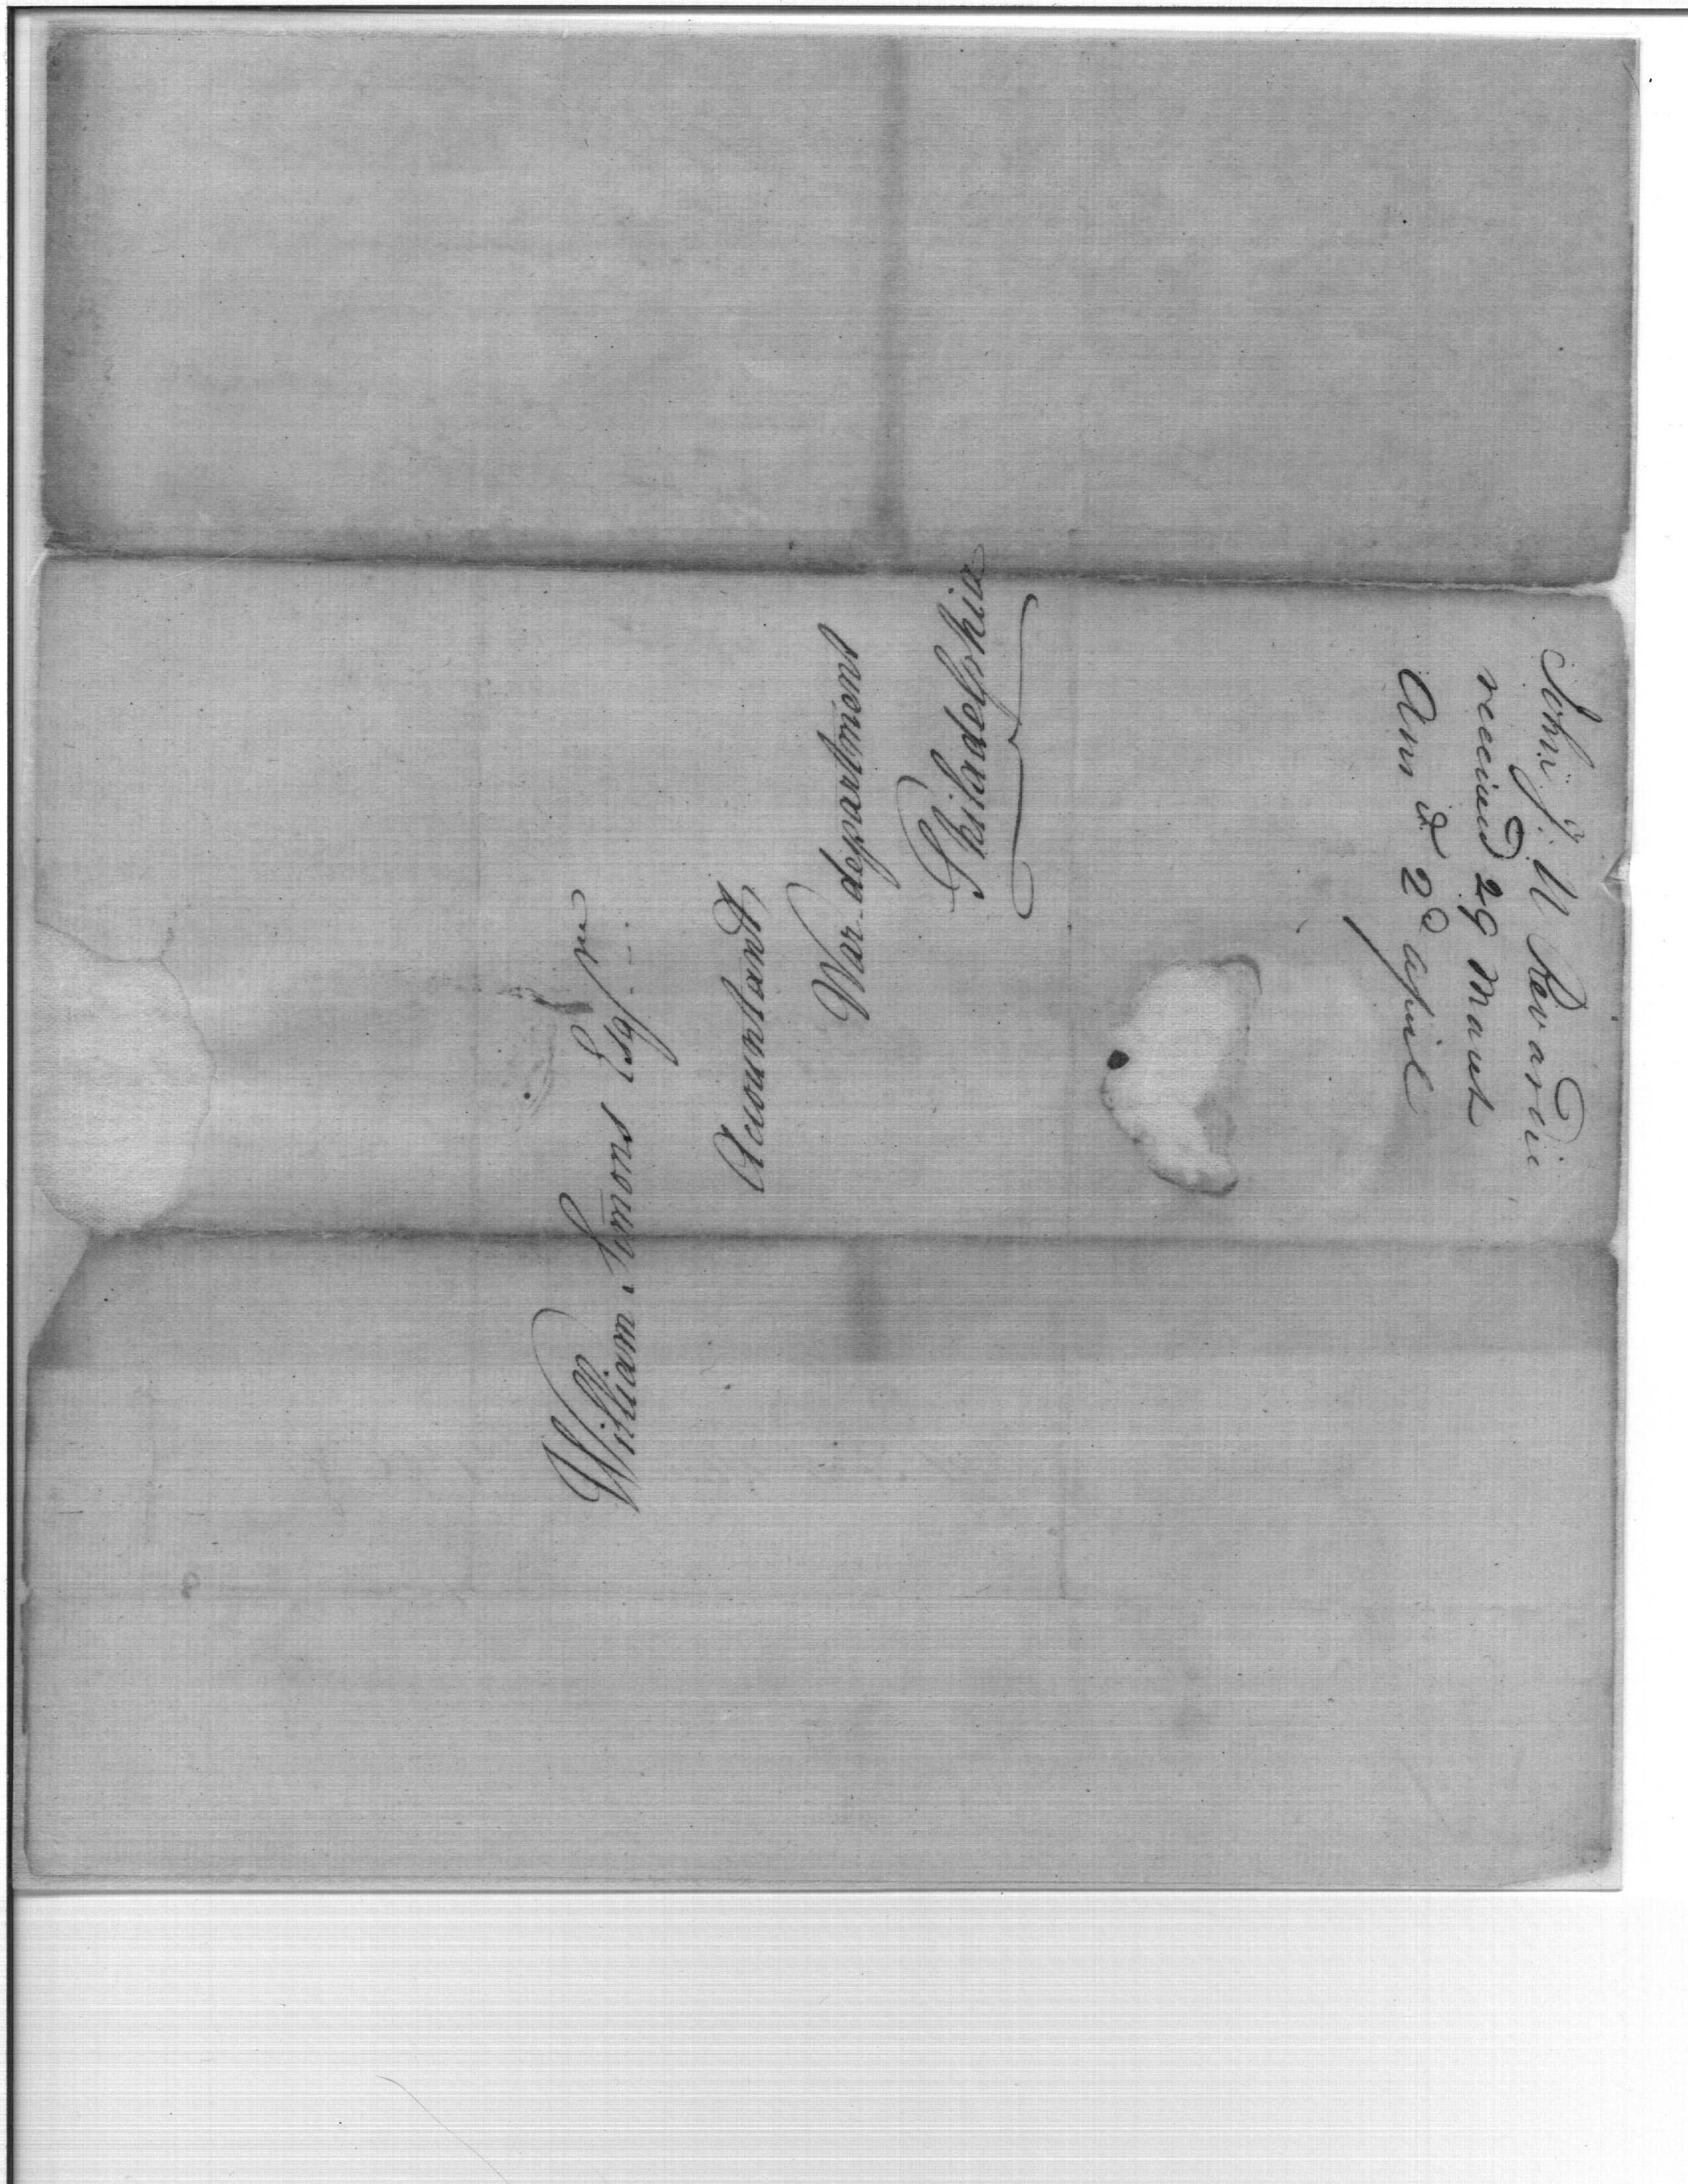 William Simons Esqr
Accountant
War department
Philadelphia
John J. U Rivardi
received 29 March
Ans d 2d april